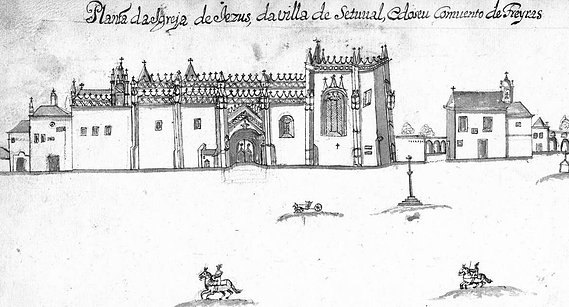 Planta da Igreja de Iezus, da villa de Setuual, E do seu Conuento de Freyras